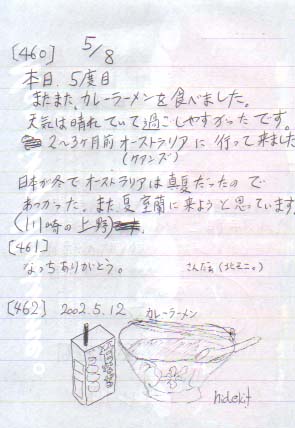 [460] 5/8
本日、5度目
またまた、カレーラーメンを食べました。
天気は晴れていて過ごしやすかったです。
2〜3ヶ月前オーストラリアに行って来ました
(ケアンズ)
日本が冬でオーストラリアは真夏だったので
あつかった。また夏室蘭に来ようと思っています
(川崎の上野)
[461]
なっちありがとう。 さんだぁ(北モニ。)
[462] 2002.5.12 カレーラーメン
hideki